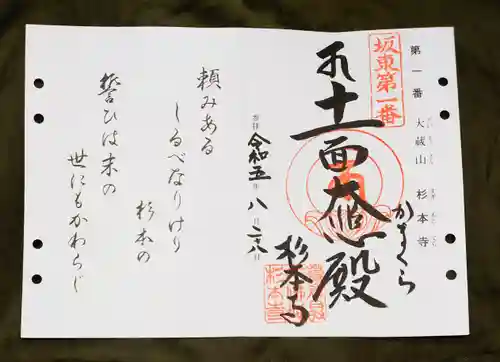 第一番 大蔵山 杉本寺
坂東第一番
かまくら
十一面大悲殿
杉本寺
参拝 令和五年 八月二十八日
頼みある
しるべなりけり
杉本の
誓ひは末の
世にもかわらじ